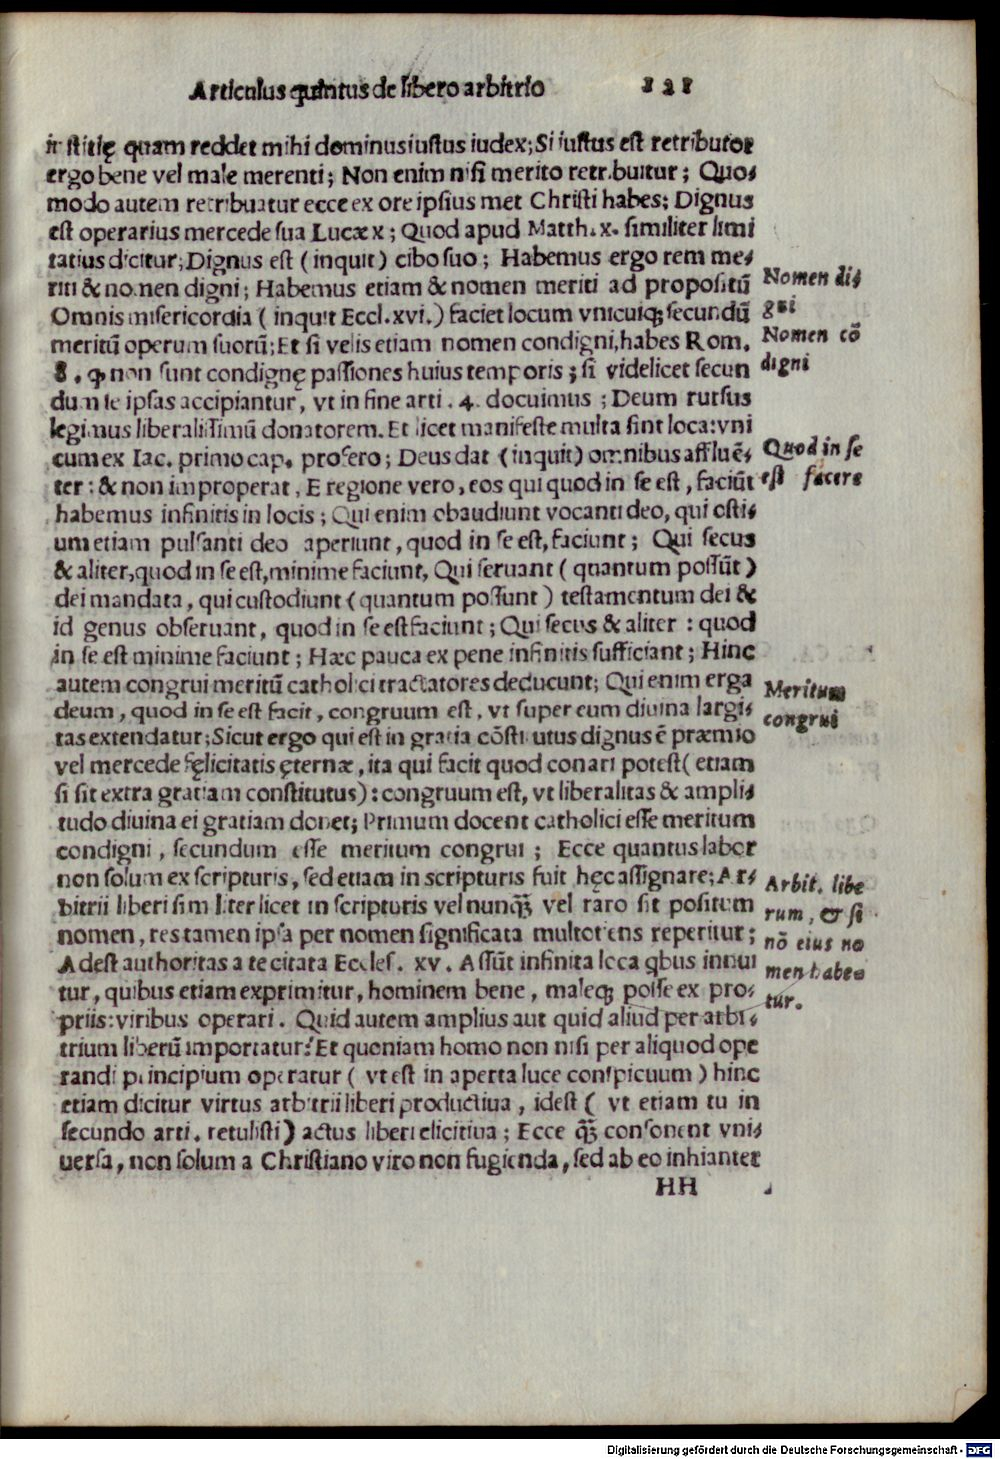 Articulus quintus de libero arbitrio 121
iustitię quam reddet mihi dominus iustus iudex; Si iustus est retributor
ergo bene vel male merenti; Non enim nisi merito retribuitur; Quo⸗
modo autem retribuatur ecce ex ore ipsius met Christi habes; Dignus
est operarius mercede sua Lucæ x; Quod apud Matth. x. similiter limi
tatius dicitur; Dignus est (inquit) cibo suo; Habemus ergo rem me⸗
riti & nomen digni; Habemus etiam & nomen meriti ad propositū
Nomen di⸗
gni
Omnis misericordia (inquit Eccl. xvi.) faciet locum vnicuiqꝫ secundū
meritū operum suorū; Et si velis etiam nomen condigni, habes Rom.
Nomen cō
digni
8. ꝙ non sunt condignę passiones huius temporis; si videlicet secun
dum se ipsas accipiantur, vt in fine arti. 4. docuimus; Deum rursus
legimus liberalissimū donatorem. Et licet manifeste multa sint loca: vni
cum ex Iac. primo cap. profero; Deus dat (inquit) omnibus affluē⸗
Quod in se
est facere
ter: & non improperat, E regione vero, eos qui quod in se est, faciūt
habemus infinitis in locis; Qui enim obaudiunt vocanti deo, qui osti⸗
um etiam pulsanti deo aperiunt, quod in se est, faciunt; Qui secus
& aliter, quod in se est, minime faciunt, Qui seruant (quantum possūt)
dei mandata, qui custodiunt (quantum possunt) testamentum dei &
id genus obseruant, quod in se est faciunt; Qui secus & aliter: quod
in se est minime faciunt; Hæc pauca ex pene infinitis sufficiant; Hinc
autem congrui meritū catholici tractatores deducunt; Qui enim erga
Meritum
congrui
deum, quod in se est facit, congruum est, vt super eum diuina largi⸗
tas extendatur; Sicut ergo qui est in gratia cōstitutus dignus ē præmio
vel mercede fęlicitatis ęternæ, ita qui facit quod conari potest (etiam
si sit extra gratiam constitutus): congruum est, vt liberalitas & ampli⸗
tudo diuina ei gratiam donet; Primum docent catholici esse meritum
condigni, secundum esse meritum congrui; Ecce quantus labor
non solum ex scripturis, sed etiam in scripturis fuit hęc assignare; Ar⸗
Arbit. libe
rum, & si
nō eius no
men habea
tur.
bitrii liberi similiter licet in scripturis vel nunqꝫ̄ vel raro sit positum
nomen, res tamen ipsa per nomen significata multotiens reperitur;
Adest authoritas a te citata Eccles. xv. Assūt infinita loca qbus innui
tur, quibus etiam exprimitur, hominem bene, maleqꝫ posse ex pro⸗
priis: viribus operari. Quid autem amplius aut quid aliud per arbi⸗
trium liberū importatur? Et quoniam homo non nisi per aliquod ope
randi principium operatur (vt est in aperta luce conspicuum) hinc
etiam dicitur virtus arbitrii liberi productiua, idest (vt etiam tu in
secundo arti. retulisti) actus liberi elicitiua; Ecce qꝫ̄ consonent vni⸗
uersa, non solum a Christiano viro non fugienda, sed ab eo inhianter
HH
Digitalisierung gefördert durch die Deutsche Forschungsgemeinschaft - DFG